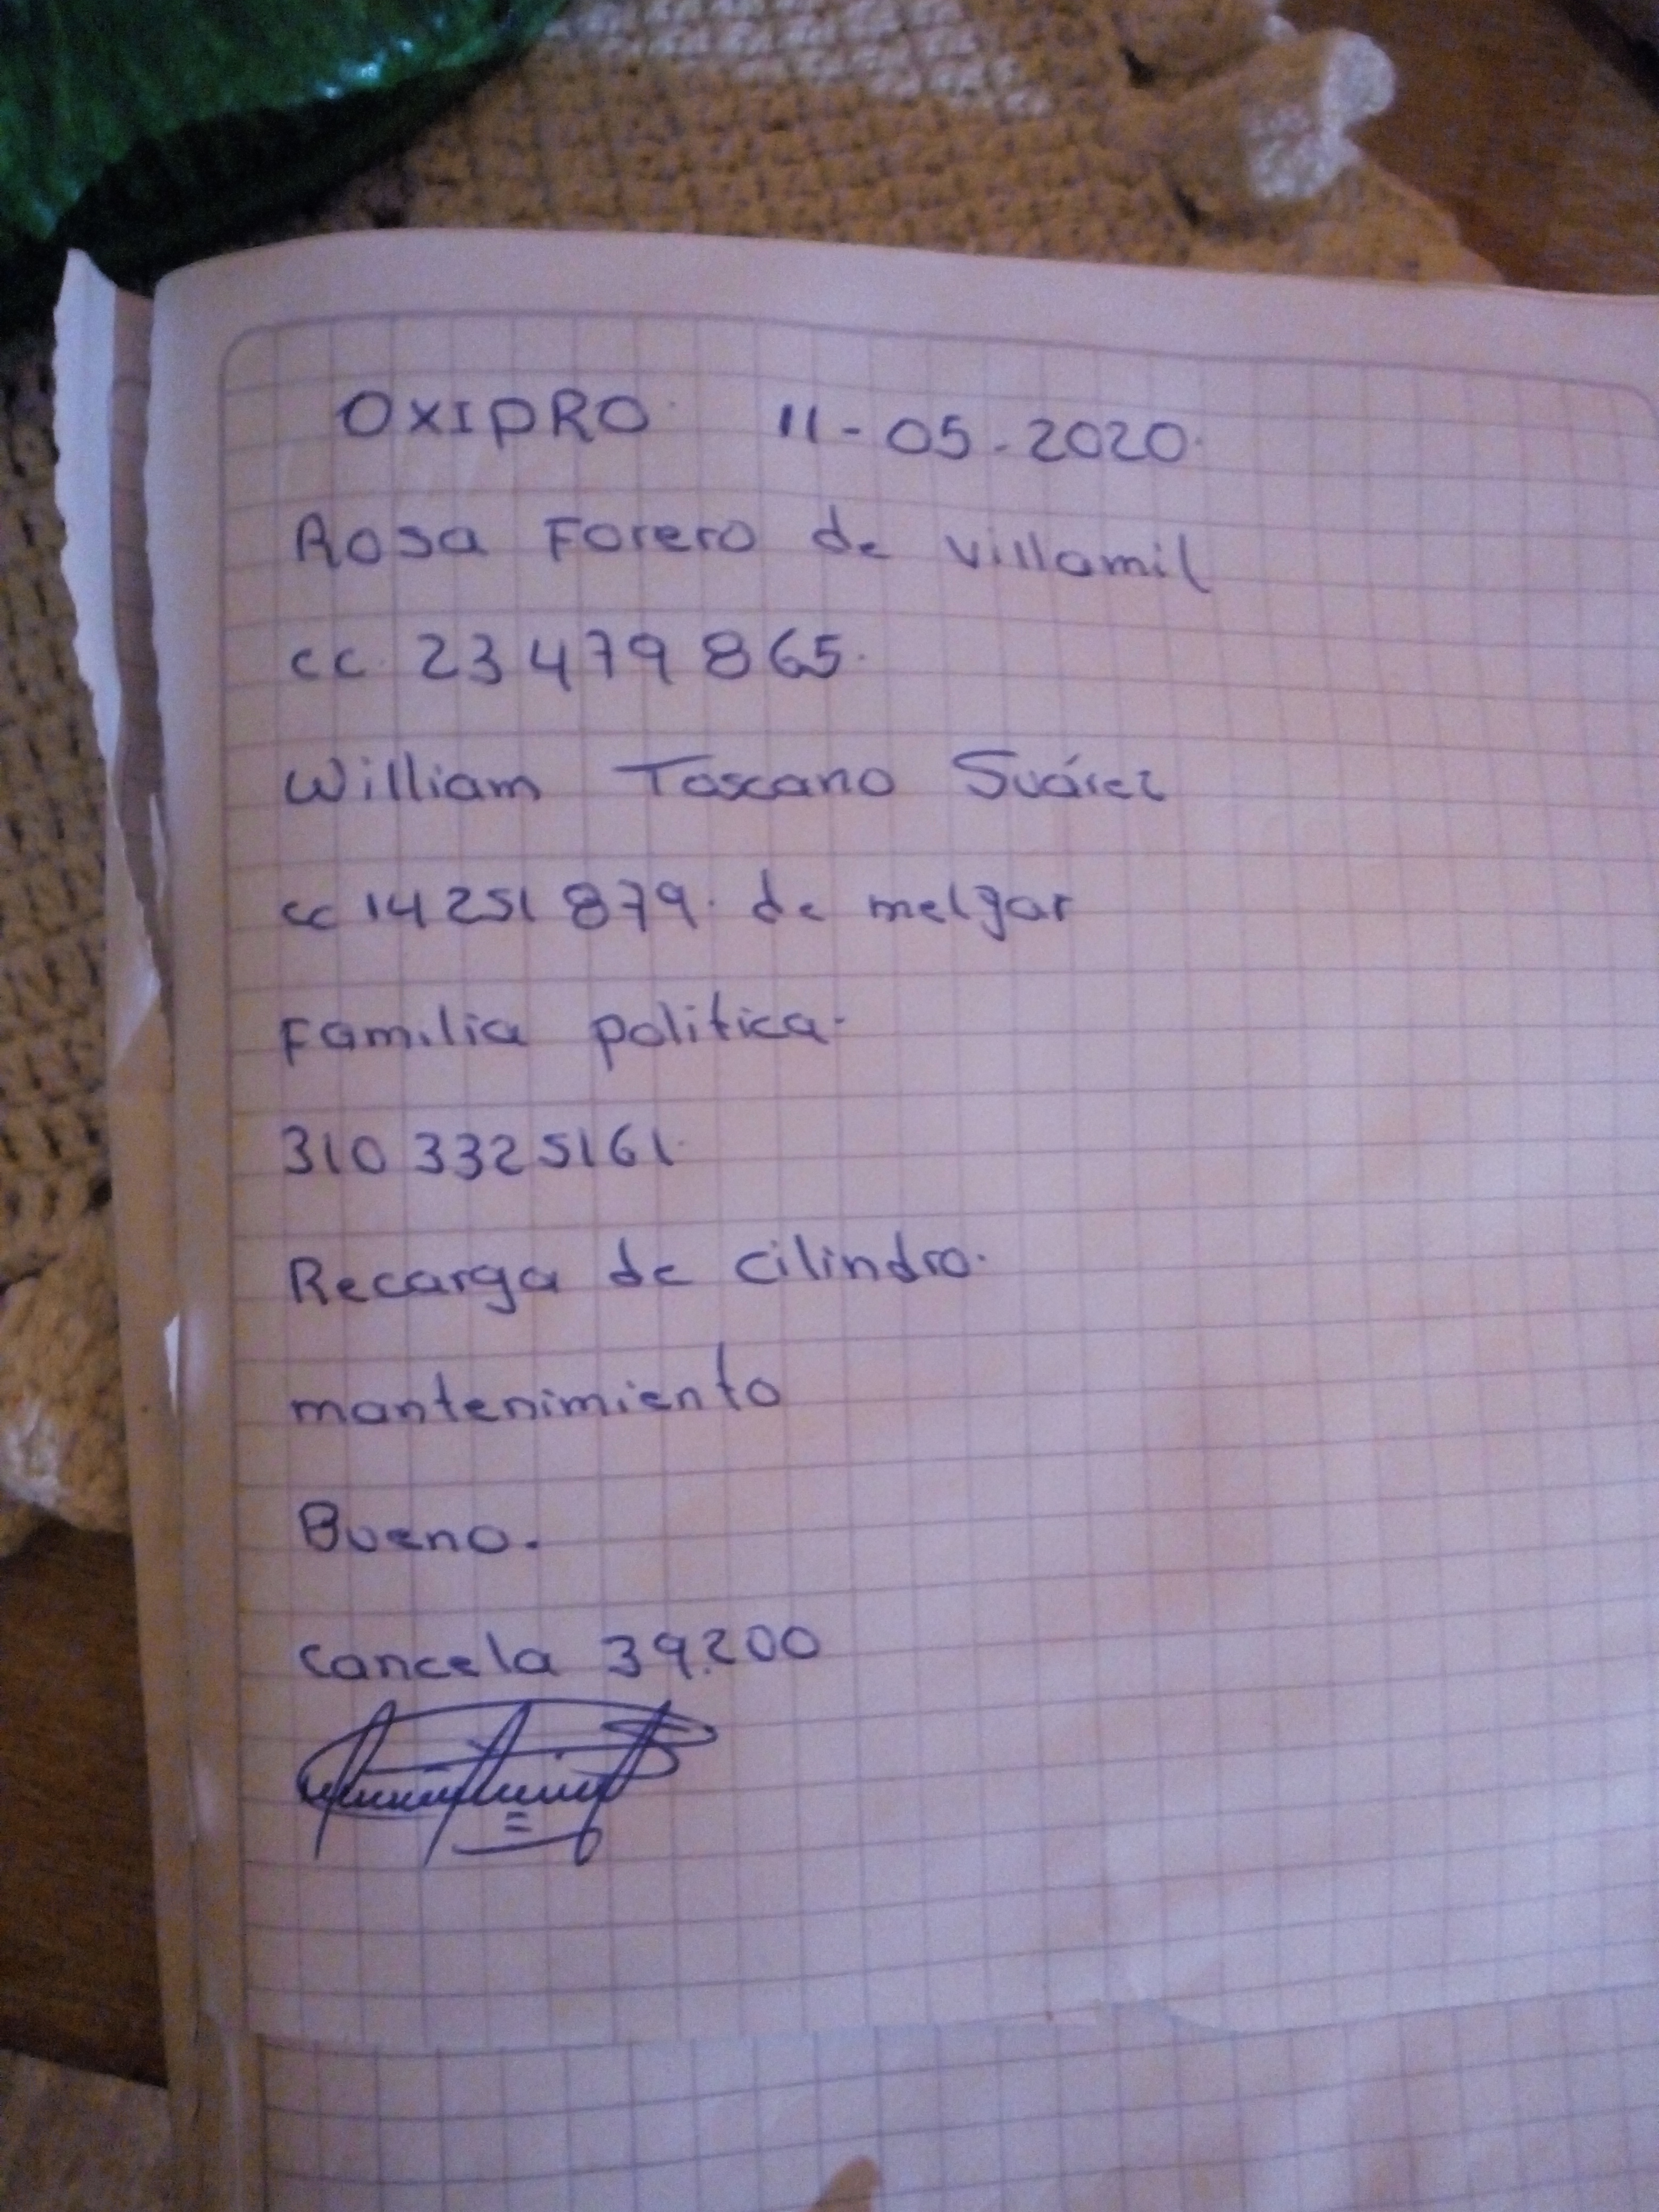 OXIPRO. 11-05-2020.
Rosa Forero de villamil
cc. 23 479 865.
William Toscano Suárez
cc 14 251 879. de melgar
Familia politica.
310 3325161.
Recarga de cilindro.
mantenimiento
Bueno.
cancela 39.200